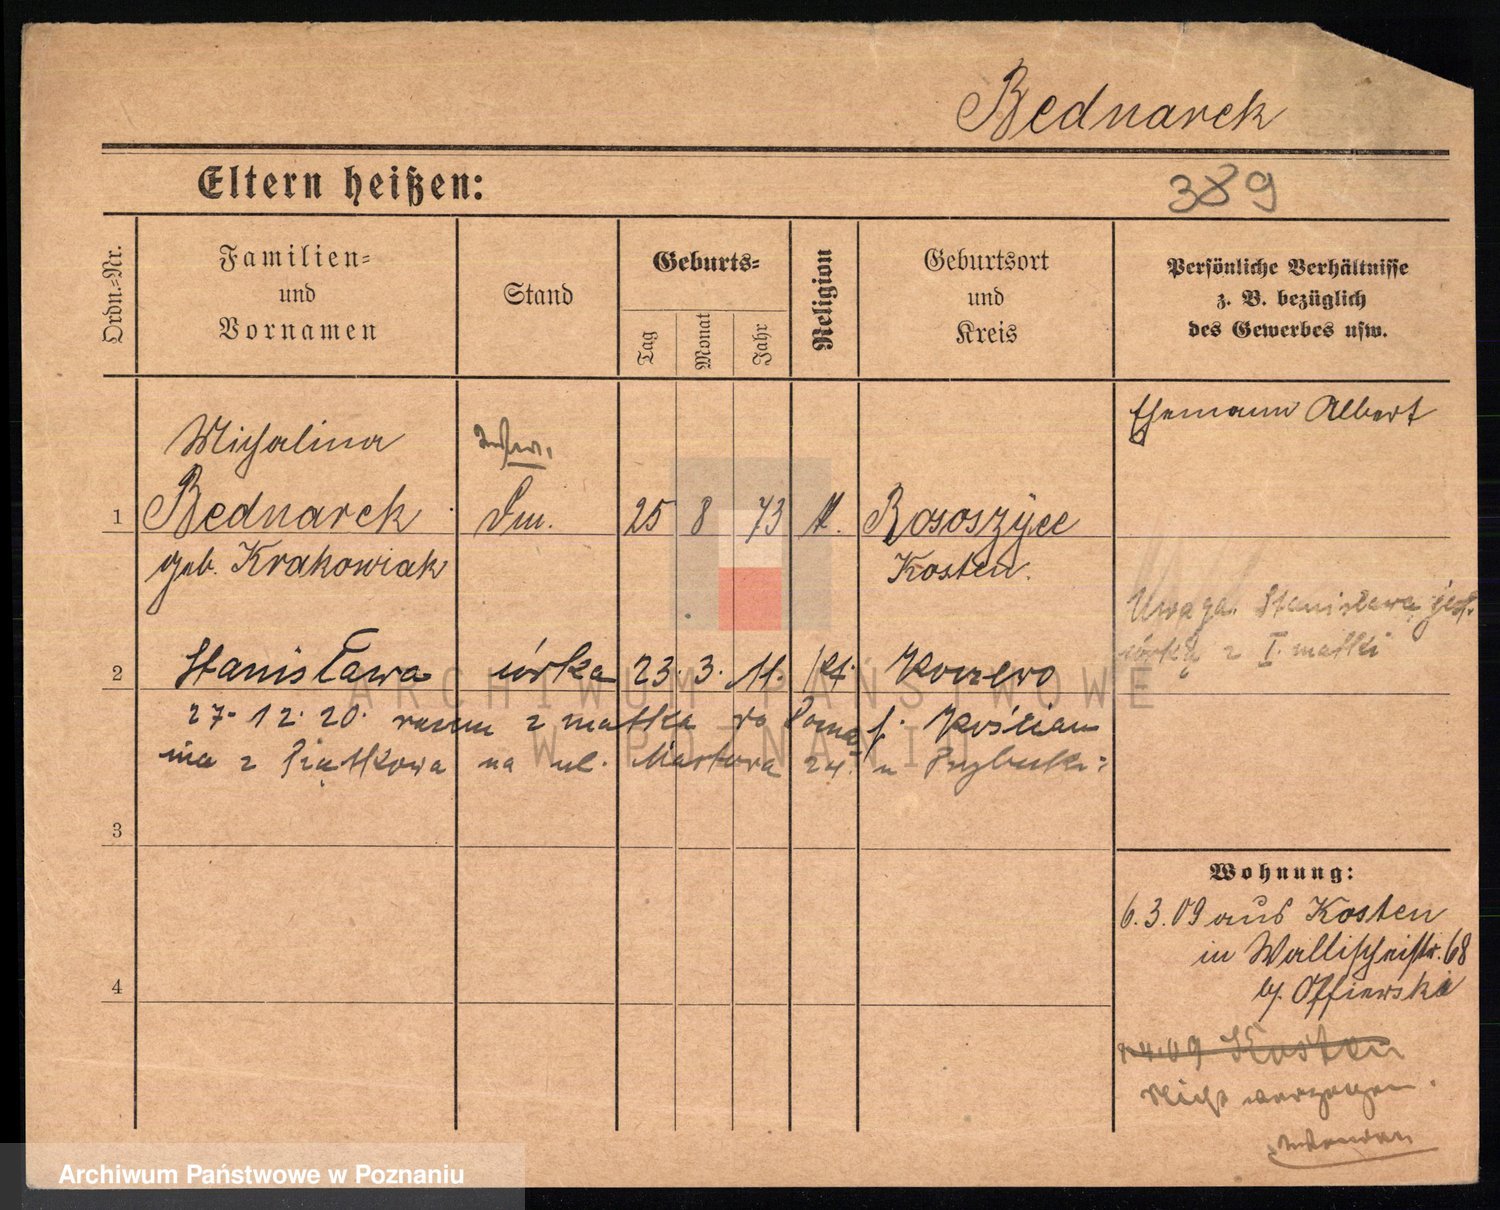 Bednarek
Eltern heißen:
389
Ordn.-Nr.
Familien-
und
Vornamen
Stand
Geburts-
Tag
Monat
Jahr
Religion
Geburtsort
und
Kreis
Persönliche Verhältnisse
z. B. bezüglich
des Gewerbes usw.
Ehemann Albert
Michalina
1 Bednarek 25 8 73 k. Rososzyce
geb. Krakowiak Kosten.
Uwaga. Stanisława jest
córką z I. matki
2 Stanisława córka 23. 3. 11. kt.
27. 12. 20. razem z matką do Pozna- Kościan
nia z Piątkowa na ul. 24. u
3
Wohnung:
6. 3. 09 aus Kosten
in Wallischeistr. 68
b/. Offierska
4
9.4.09 Kosten
Nicht verzogen.
ARCHIWUM PAŃSTWOWE
W POZNANIU
Archiwum Państwowe w Poznaniu